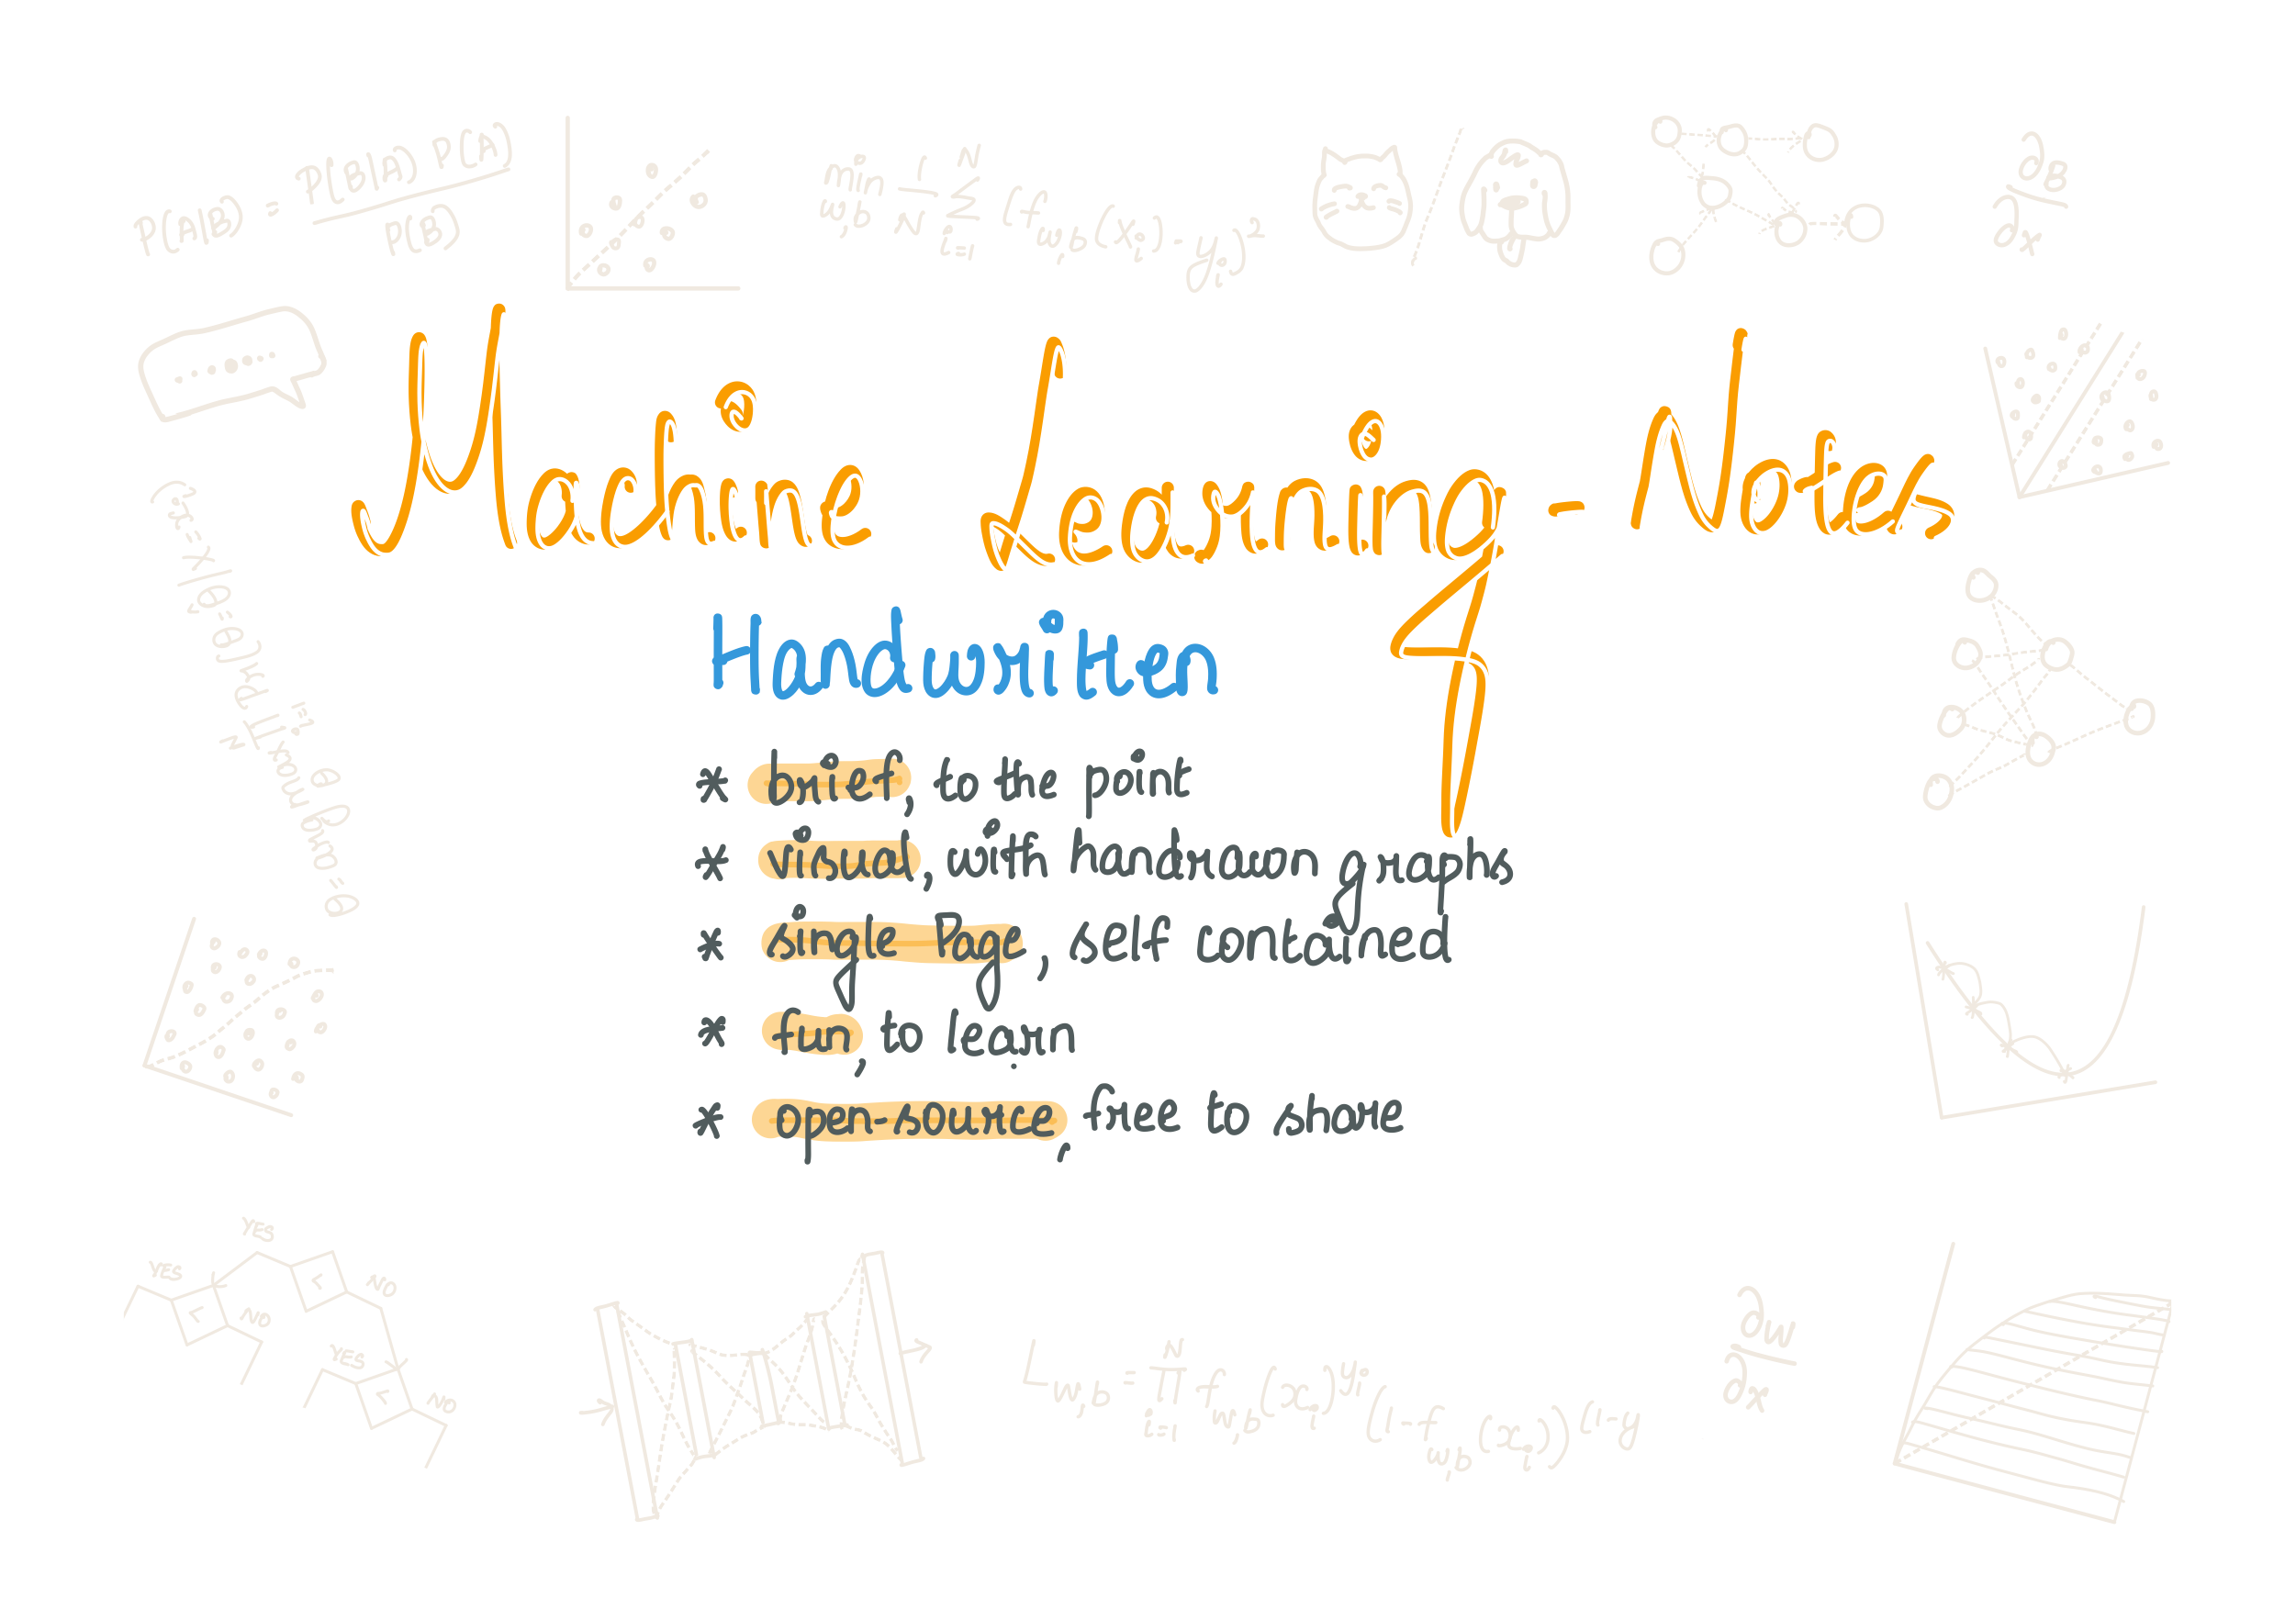 P(A|B) = P(B|A) P(A)
P(B)
min 1/N N Σ i=1 (f w,b (xi) - yi)²
w,b
∂B
∂x
Machine Learning - Notes
Handwritten
* brief, to the point
* visual, with hardrawn graphs
* single Page, self contained
* fun, to learn
* open-source, free to share
YES
YES
<
NO
<
NO
YES
<
NO
L w,b = N Π i=1 f w,b (xi) yi (1-f w,b (xi)) (1-y
∂w
∂x